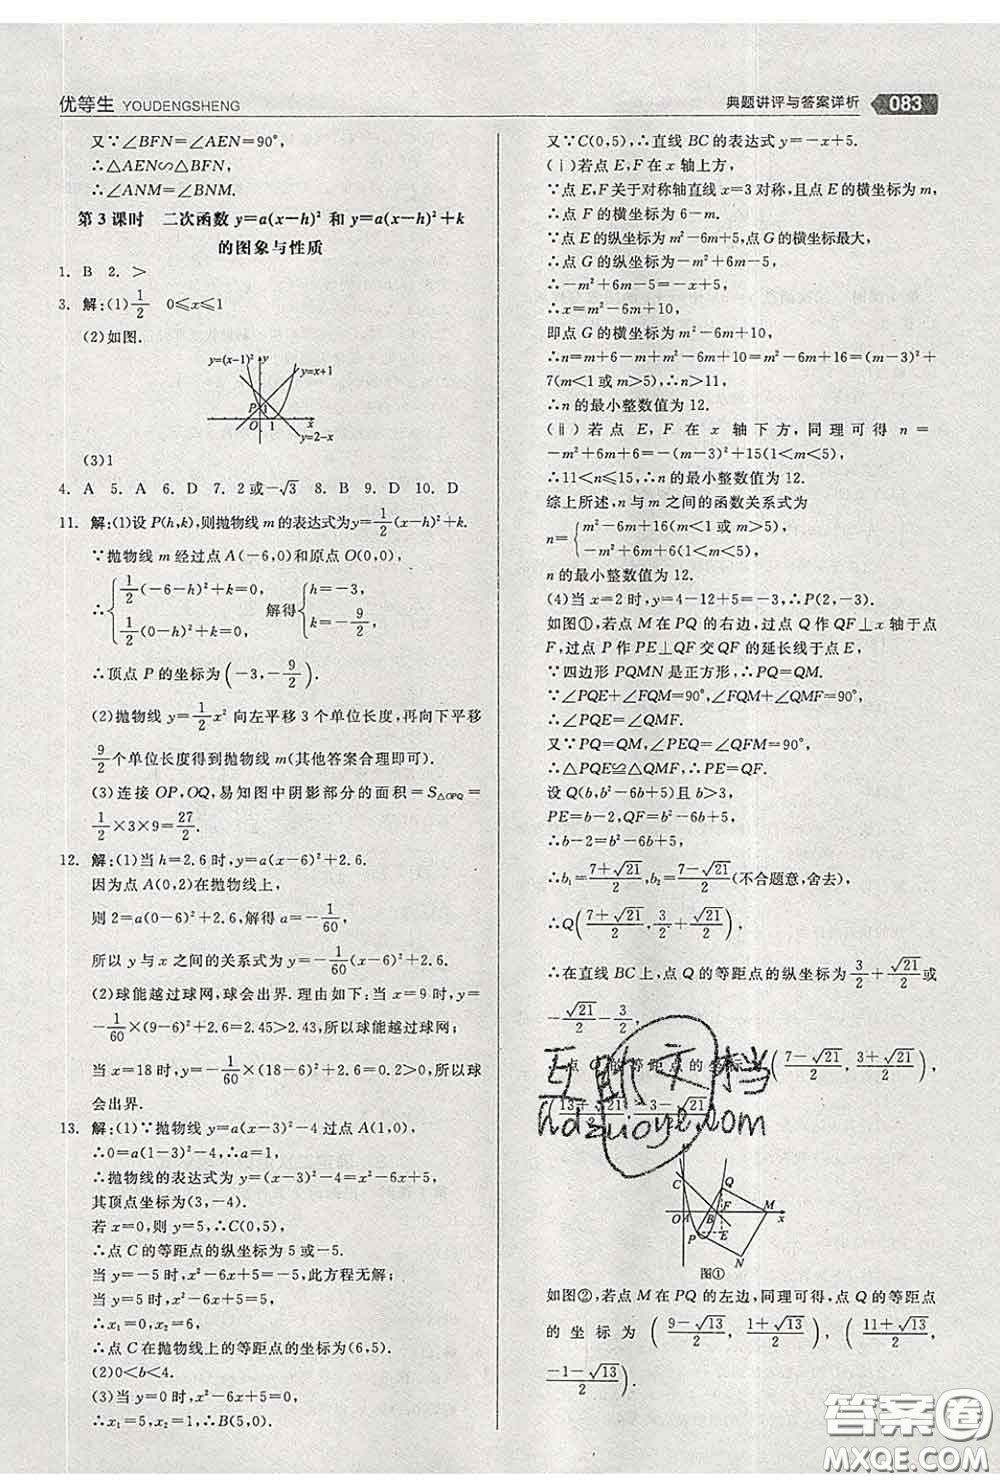 优等生 YOUDENGSHENG
典题讲评与答案详析 083
又∵∠BFN=∠AEN=90°,
∴△AEN∽△BFN,
∴∠ANM=∠BNM.
第3课时 二次函数 y=a(x-h)² 和 y=a(x-h)²+k
的图象与性质
1. B 2. >
3. 解:(1)1/2 0≤x≤1
(2)如图.
y=(x-1)² y y=x+1
P 1
O 1 x
y=2-x
(3)1
4. A 5. A 6. D 7. 2或-√3 8. B 9. D 10. D
11. 解:(1)设P(h,k),则抛物线m的表达式为y=1/2(x-h)²+k.
∵抛物线m经过点A(-6,0)和原点O(0,0),
∴{1/2(-6-h)²+k=0, 1/2(0-h)²+k=0, 解得{h=-3, k=-9/2.
∴顶点P的坐标为(-3,-9/2).
(2)抛物线y=1/2x²向左平移3个单位长度,再向下平移
9/2个单位长度得到抛物线m(其他答案合理即可).
(3)连接OP,OQ,易知图中阴影部分的面积=S△OPQ=
1/2×3×9=27/2.
12. 解:(1)当h=2.6时,y=a(x-6)²+2.6.
因为点A(0,2)在抛物线上,
则2=a(0-6)²+2.6,解得a=-1/60,
所以y与x之间的关系式为y=-1/60(x-6)²+2.6.
(2)球能越过球网,球会出界.理由如下:当x=9时,y=
-1/60×(9-6)²+2.6=2.45>2.43,所以球能越过球网;
当x=18时,y=-1/60×(18-6)²+2.6=0.2>0,所以球
会出界.
13. 解:(1)∵抛物线y=a(x-3)²-4过点A(1,0),
∴0=a(1-3)²-4,∴a=1,
∴抛物线的表达式为y=(x-3)²-4=x²-6x+5,
其顶点坐标为(3,-4).
若x=0,则y=5,∴C(0,5),
∴点C的等距点的纵坐标为5或-5.
当y=-5时,x²-6x+5=-5,此方程无解;
当y=5时,x²-6x+5=5,
∴x₁=0,x₂=6,
∴点C在抛物线上的等距点的坐标为(6,5).
(2)0<b<4.
(3)当y=0时,x²-6x+5=0,
∴x₁=5,x₂=1,∴B(5,0).
又∵C(0,5),∴直线BC的表达式y=-x+5.
(ⅰ)若点E,F在x轴上方,
∵点E,F关于对称轴直线x=3对称,且点E的横坐标为m,
∴点F的横坐标为6-m.
∵点E的纵坐标为m²-6m+5,点G的横坐标最大,
∴点G的纵坐标为-m²+6m-5,
∴-m²+6m-5=-x+5,
∴x=m²-6m+10,
即点G的横坐标为m²-6m+10,
∴n=m+6-m+m²-6m+10=m²-6m+16=(m-3)²+
7(m<1或m>5),∴n>11,
∴n的最小整数值为12.
(ⅱ)若点E,F在x轴下方,同理可得n=
-m²+6m+6=-(m-3)²+15(1<m<5),
∴11<n≤15,∴n的最小整数值为12.
综上所述,n与m之间的函数关系式为
n={m²-6m+16(m<1或m>5), -m²+6m+6(1<m<5),
n的最小整数值为12.
(4)当x=2时,y=4-12+5=-3,∴P(2,-3).
如图①,若点M在PQ的右边,过点Q作QF⊥x轴于点
F,过点P作PE⊥QF交QF的延长线于点E,
∵四边形PQMN是正方形,∴PQ=QM.
∵∠PQE+∠FQM=90°,∠FQM+∠QMF=90°,
∴∠PQE=∠QMF.
又∵PQ=QM,∠PEQ=∠QFM=90°,
∴△PQE≌△QMF,∴PE=QF.
设Q(b,b²-6b+5)且b>3,
PE=b-2,QF=b²-6b+5,
∴b-2=b²-6b+5,
∴b₁=(7+√21)/2,b₂=(7-√21)/2(不合题意,舍去),
∴Q((7+√21)/2,3/2+√21/2),
∴在直线BC上,点Q的等距点的纵坐标为3/2+√21/2或
-√21/2-3/2,
∴点Q的等距点的坐标为((7-√21)/2,(3+√21)/2),
((13+√21)/2,(-3-√21)/2).
C Q
O A B F M x
P E
N
图①
如图②,若点M在PQ的左边,同理可得,点Q的等距点
的坐标为((9-√13)/2,(1+√13)/2),((11+√13)/2,
(-1-√13)/2).
互助文档
hdzuoye.com
答案圈
MXQE.COM